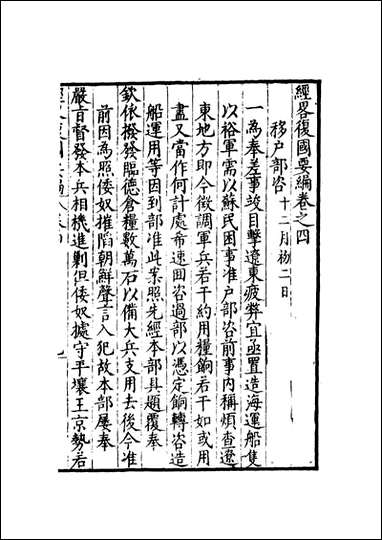 經畧復國要編卷之四
移户部咨 十二月初二日
一為奉差事竣目擊遼東疲弊宜亟置造海運船隻
以裕軍需以蘇民困事准户部咨前事内稱煩查遼
東地方即今徵調軍兵若干約用糧餉若干如或用
盡又當作何計處希速回咨過部以憑定餉轉咨造
船運用等因到部准此案照先經本部具題覆奉
欽依撥發臨德倉糧數萬石以備大兵支用去後今准
前因為照倭奴摧陷朝鮮聲言入犯故本部屢奉
嚴旨督發本兵相機進剿但倭奴據守平壤王京勢若